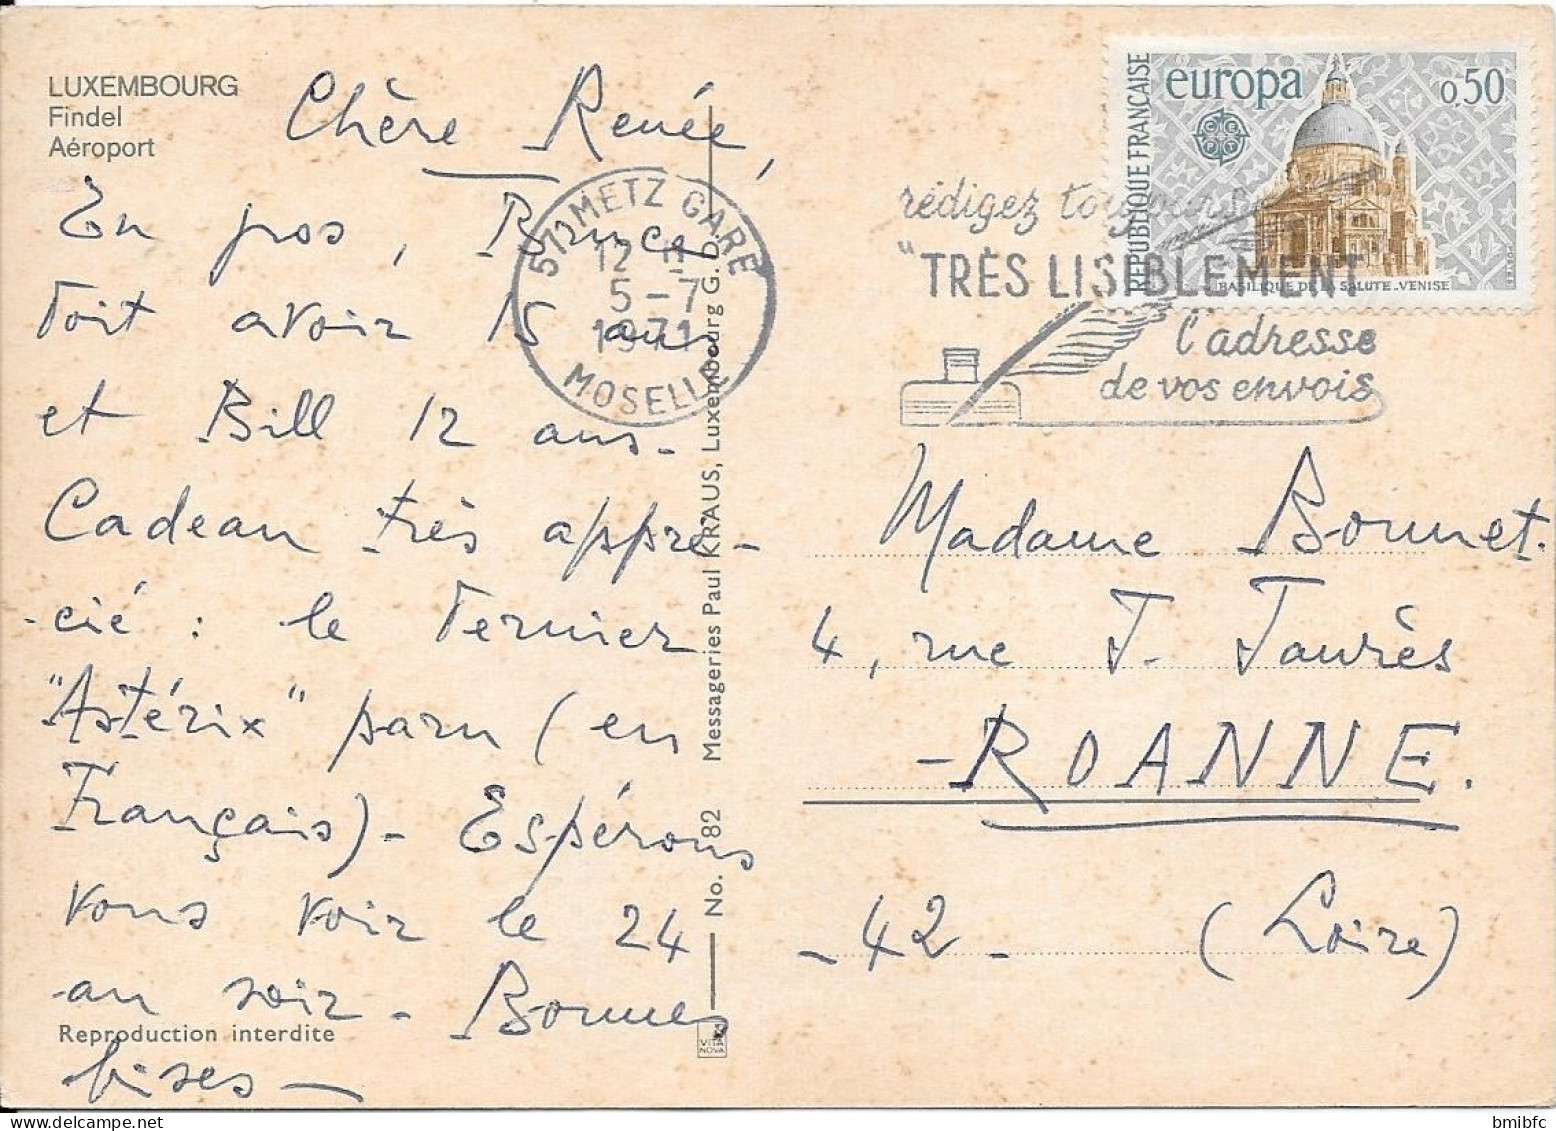 LUXEMBOURG
Findel
Aéroport
Chère Renée,
En gros, Bruce
doit avoir 15 ans
et Bill 12 ans.
Cadeau très appré-
-cié : le dernier
"Astérix" paru (en
Français) - Espérons
vous voir le 24
au soir - Bonnes
bises -
Reproduction interdite
No. 82 Messageries Paul KRAUS, Luxembourg G. D.
VITA
NOVA
57 METZ GARE
12 H
5 - 7
1971
MOSELLE
rédigez toujours
"TRÈS LISIBLEMENT
l'adresse
de vos envois
RÉPUBLIQUE FRANÇAISE
europa
0,50
CEPT
BASILIQUE DE LA SALUTE - VENISE
Madame Bonnet.
4, rue J. Jaurès
- ROANNE.
- 42 - (Loire)
bmibfc